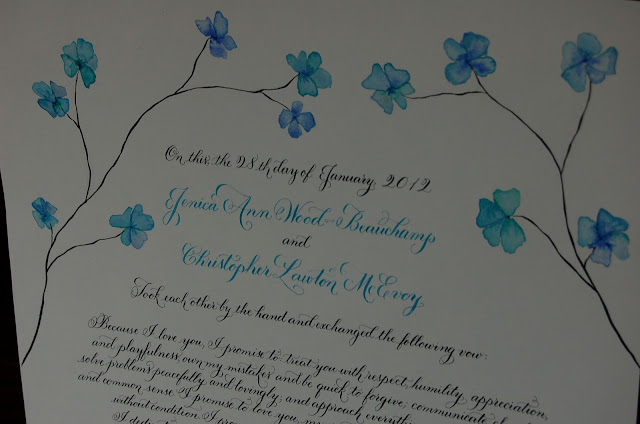 On this, the 28th day of January, 2012
Jenica Ann Wood-Beauchamp
and
Christopher Lawton McEvoy
Took each other by the hand and exchanged the following vow:
Because I love you, I promise to treat you with respect, humility, appreciation,
and playfulness; own my mistakes and be quick to forgive; communicate
solve problems peacefully and lovingly; and approach everything
and common sense. I promise to love you,
without condition. I